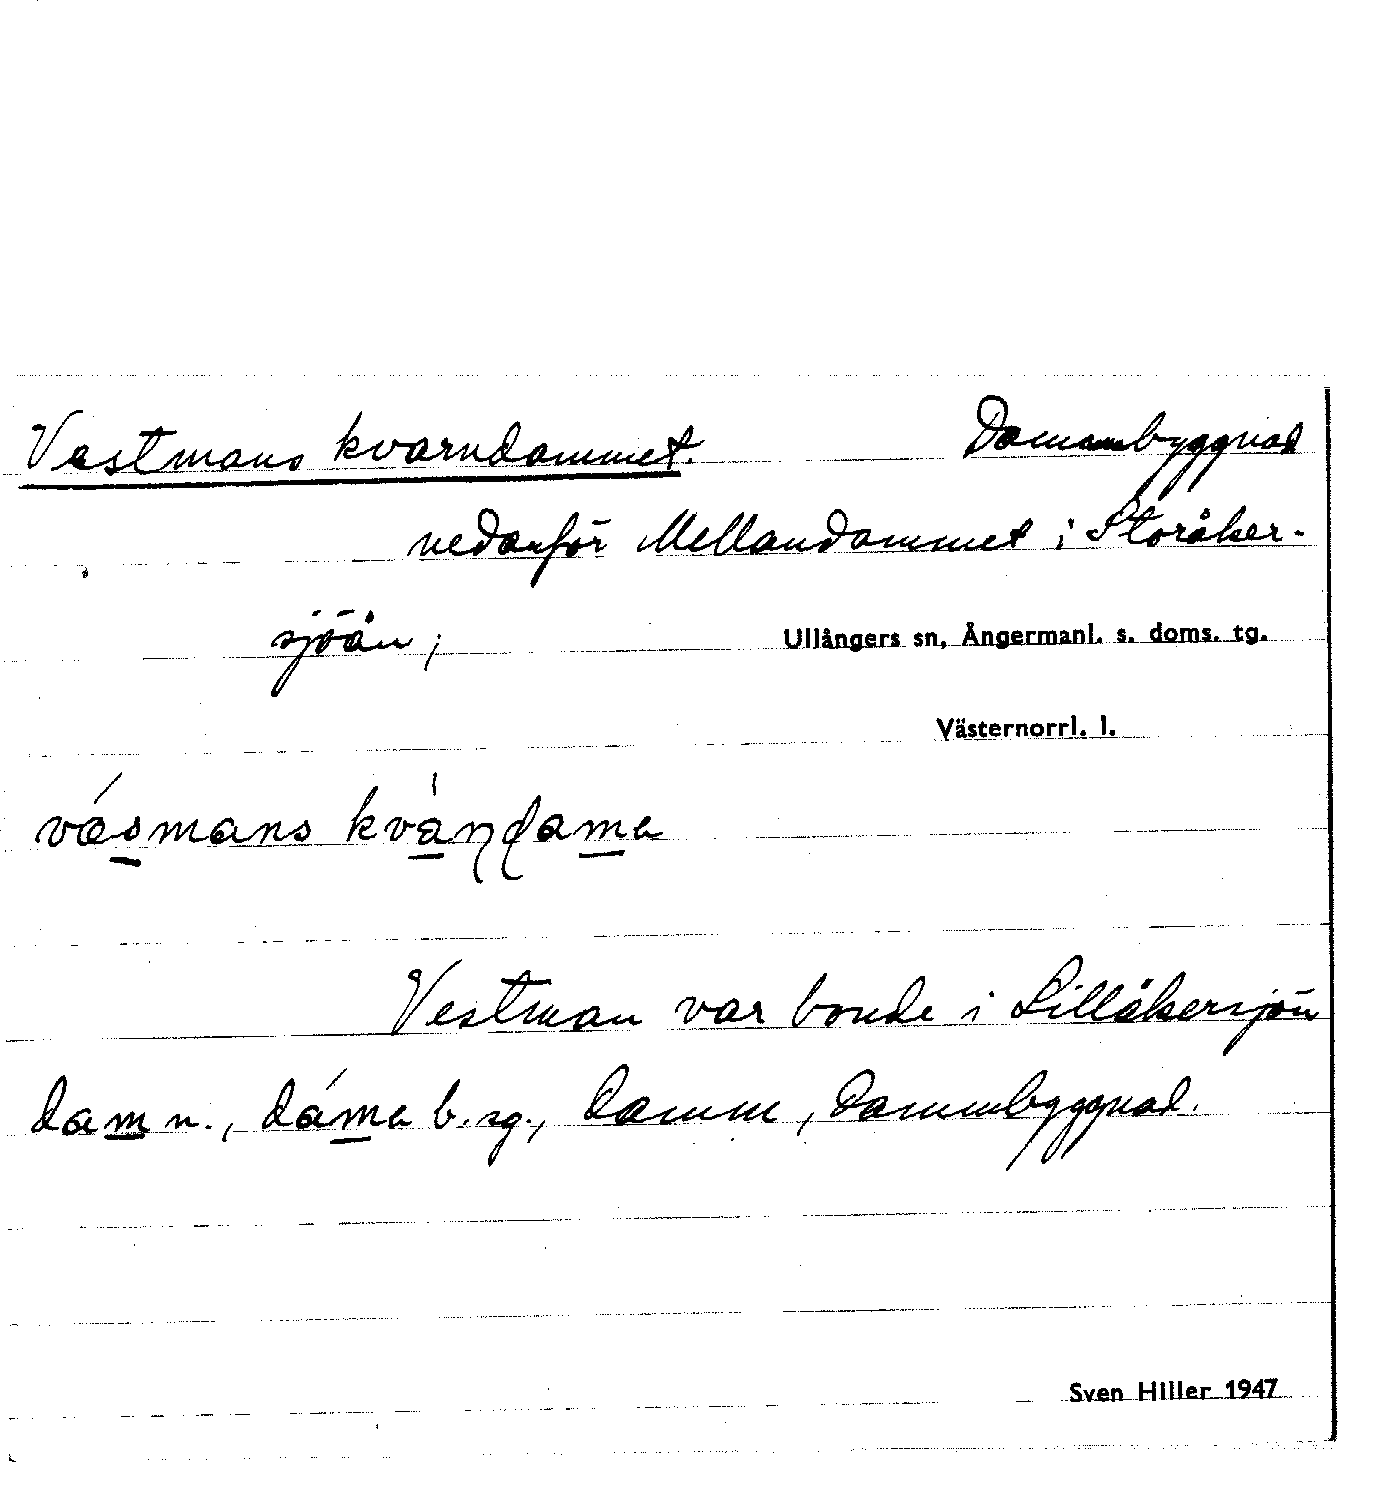 Vestmans kvarndammet. Dammbyggnad
nedanför Mellandammet i Storåker-
sjöån; Ullångers sn, Ångermanl. s. doms. tg.
Västernorrl. l.
våsmans kvàɳɖama
Vestman var bonde i Lillåkersjön
dam n., dáma b. sg., damm, dammbyggnad.
Sven Hiller 1947